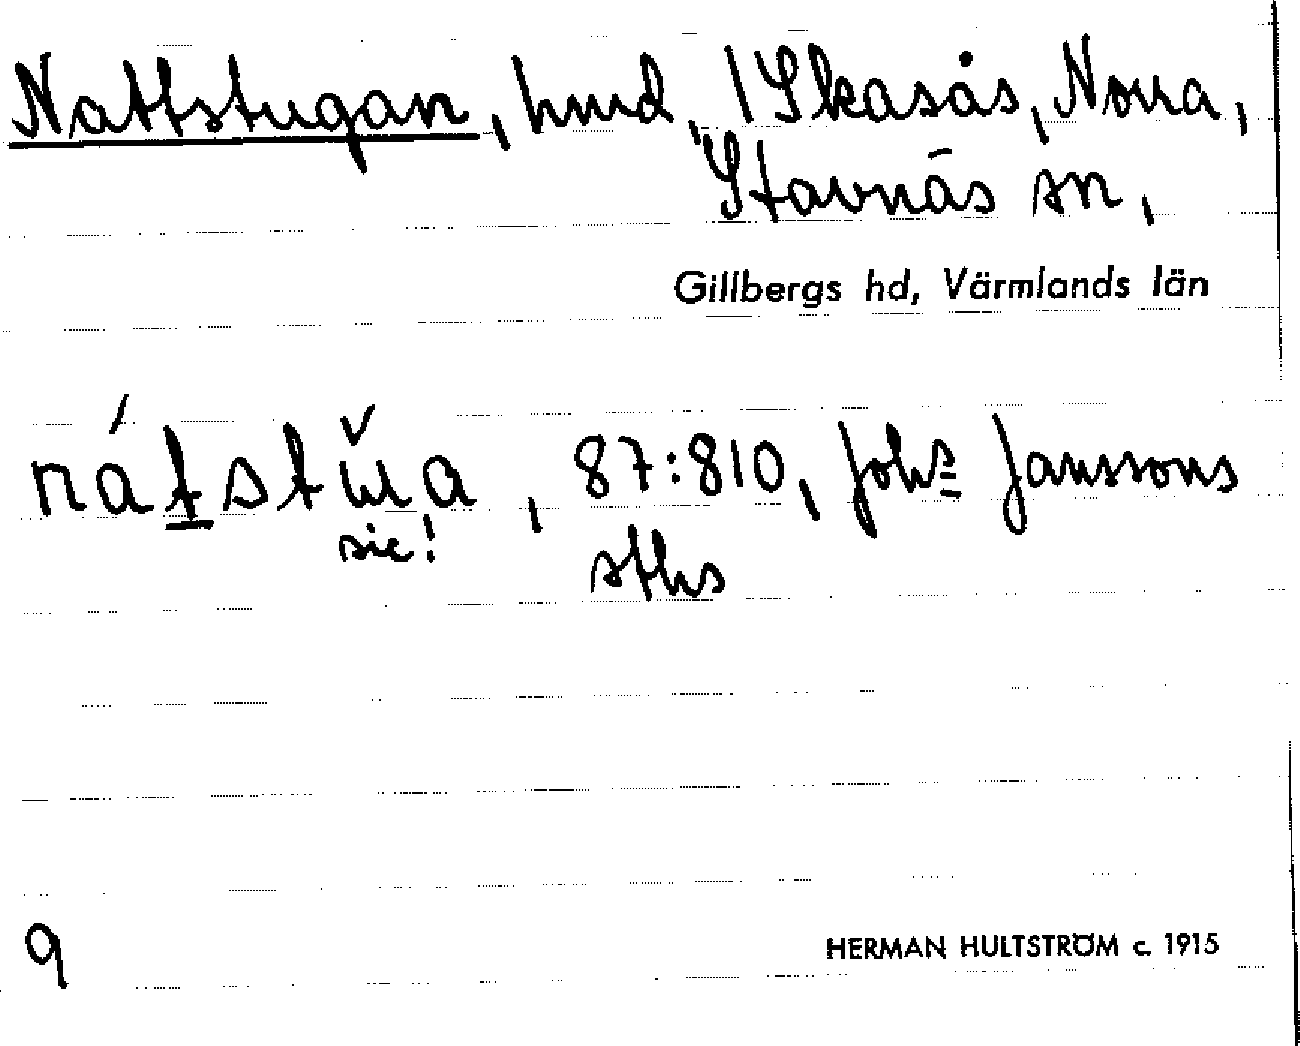 Nattstugan, hmd, /Skasås, Norra,
Stavnäs sn,
Gillbergs hd, Värmlands län
nátstŭa, 87:810, Johs Janssons
sic! sths
9
HERMAN HULTSTRÖM c. 1915